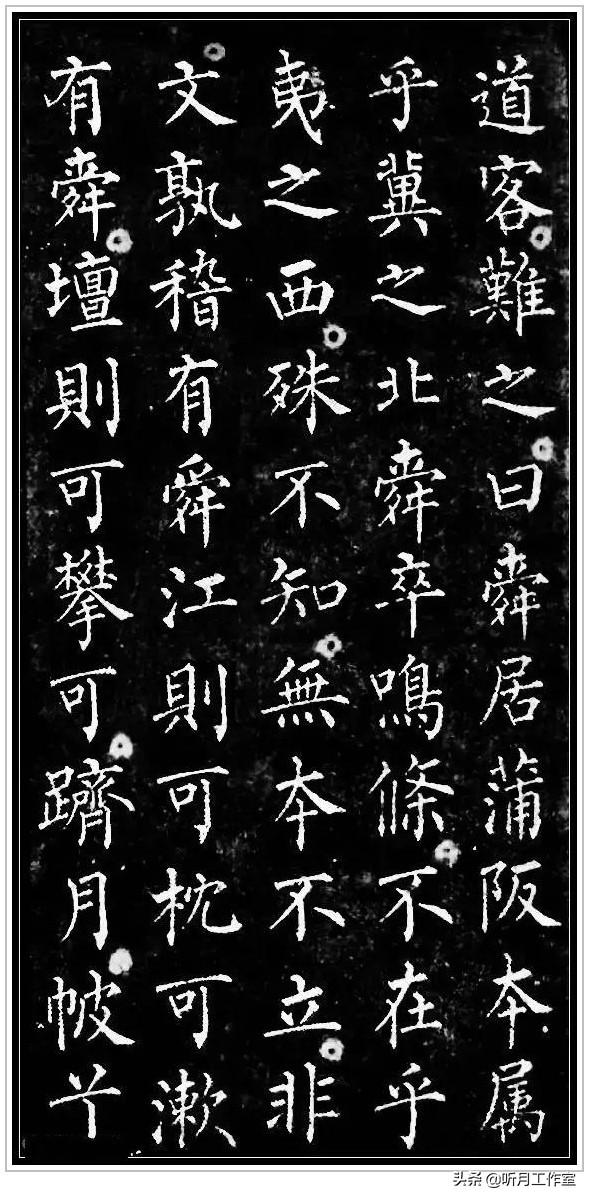 道客難之曰舜居蒲阪本属
乎冀之北舜卒鳴條不在乎
夷之西殊不知無本不立非
文孰稽有舜江則可枕可漱
有舜壇則可攀可躋月帔丫
头条 @听月工作室